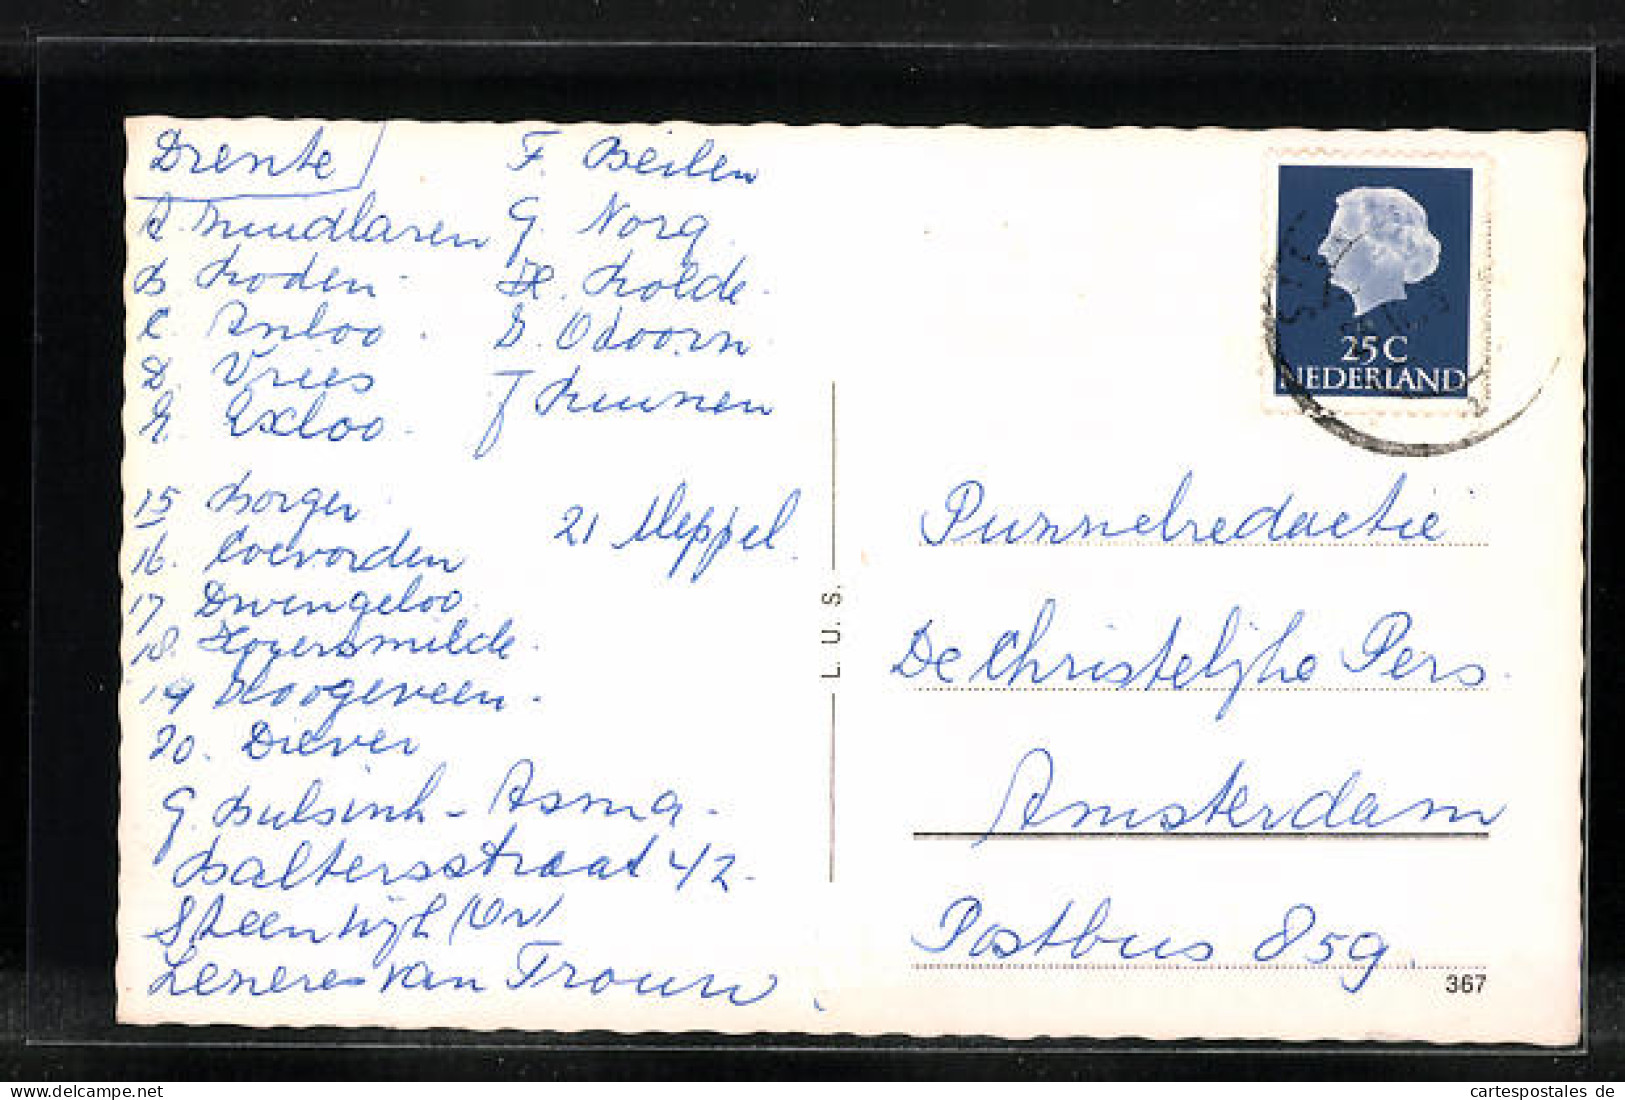 Drente
A. Zuudlaren
B Roden
C. Anloo
D. Vries
E. Exloo
F. Beilen
G. Norg
H. Rolde
I. Odoorn
J Ruinen
15 Borger
16. Coevorden
17 Dwingeloo
18. Hoyersmilde
19 Hoogeveen
20. Diever
21 Meppel
G. Bulsink - Asma
Baltersstraat 42
Steenwijk (Ov)
Lezeres van Trouw
L.U.S.
25C
NEDERLAND
Puzzelredactie
De Christelijke Pers
Amsterdam
Postbus 859
367
cartespostales de